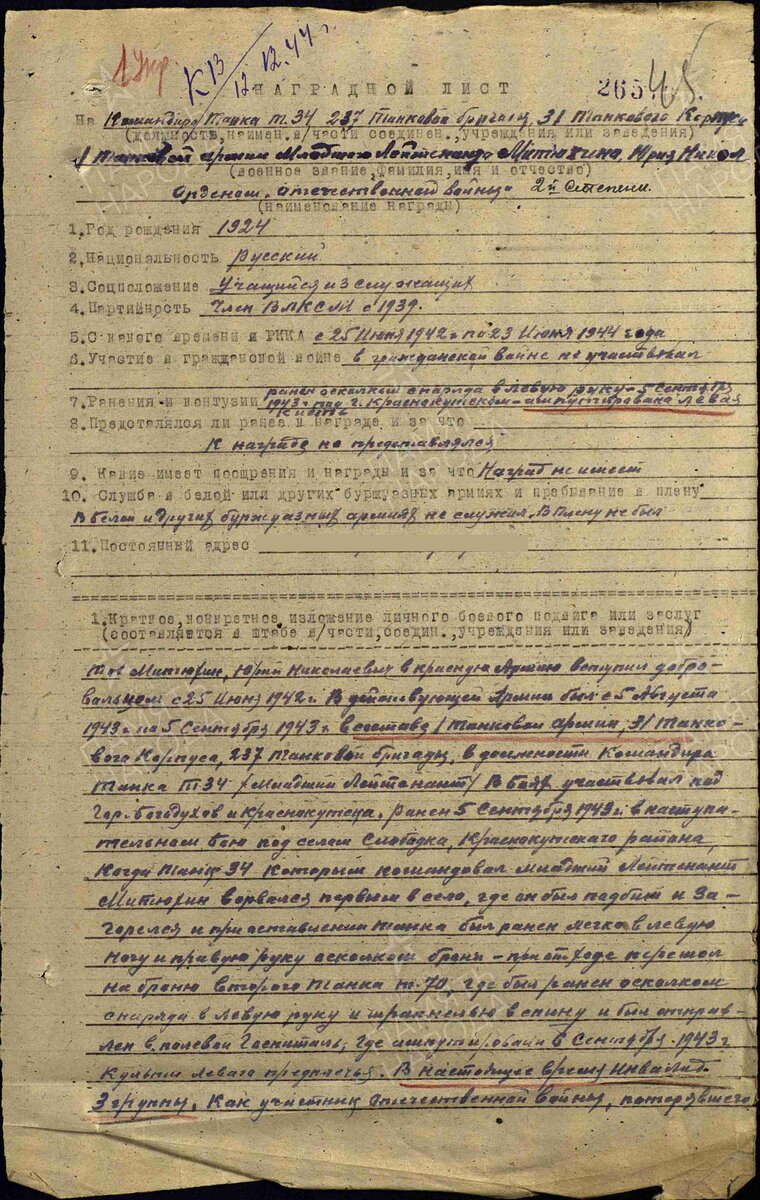 1 Укр.
К 13/12 12.44 г.
НАГРАДНОЙ ЛИСТ 265 45.
На Командира Танка т. 34 237 Танковой бригады, 31 Танкового Корпуса
(должность, наимен. в/части соединен., учреждения или заведения)
1 Танковой армии Младшего Лейтенанта Митюхина, Юрия Никол
(военное звание, фамилия, имя и отчество)
Орденом, отечественной войны 2й степени.
(наименование награды)
1. Год рождения 1924
2. Национальность Русский
3. Соцположение Учащийся из служащих
4. Партийность Член ВЛКСМ с 1939.
5. С какого времени в РККА с 25 Июня 1942 г. по 23 Июня 1944 года
6. Участие в гражданской войне в гражданской войне не участвовал
ранен осколком снаряда в левую руку 5 Сентября
7. Ранения и контузии 1943 г. под г. Краснокутском - ампутирована левая
кисть
8. Представлялся ли ранее к награде и за что
К награде не представлялся
9. Какие имеет поощрения и награды и за что Наград не имеет
10. Служба в белой или других буржуазных армиях и пребывание в плену
В белой и других буржуазных армиях не служил. В плену не был
11. Постоянный адрес
1. Краткое, конкретное изложение личного боевого подвига или заслуг
(составляется в штабе в/части, соедин., учреждения или заведения)
Тов Митюрин, Юрий Николаевич в красную Армию вступил добро-
вольном с 25 Июня 1942 г. В действующей Армии был с 5 Августа
1943 г. по 5 Сентября 1943 г. в составе 1 танковой армии, 31 Танко-
вого Корпуса, 237 Танковой бригады, в должности Командира
Танка Т34 /Младший Лейтенант/ В боях участвовал под
Гор. Богодухов и Краснокутска. Ранен 5 Сентября 1943 г. в наступа-
тельном бою под селом Слободка, Краснокутского района,
Когда Танк 34 которым командовал Младший Лейтенант
Митюрин ворвался первым в село, где он был подбит и За-
горелся и при оставлении танка был ранен легко в левую
ногу и правую руку осколком брони - при отходе перешол
на броню второго танка т. 70, где был ранен осколком
снаряда в левую руку и шрапнелью в спину и был отправ-
лен в полевой Госпиталь, где ампутировали 6 Сентября 1943 г
Культи левого предплечья. В настоящее время Инвалид
3 группы. Как участник отечественной войны, потерявшего